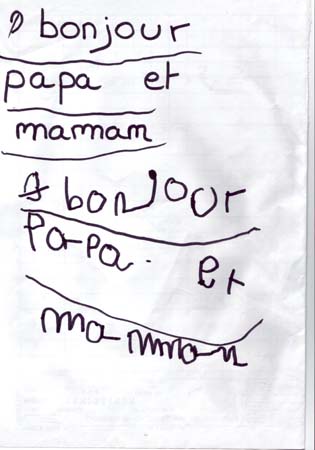 bonjour
papa et
maman
bonjour
Papa. et
maman